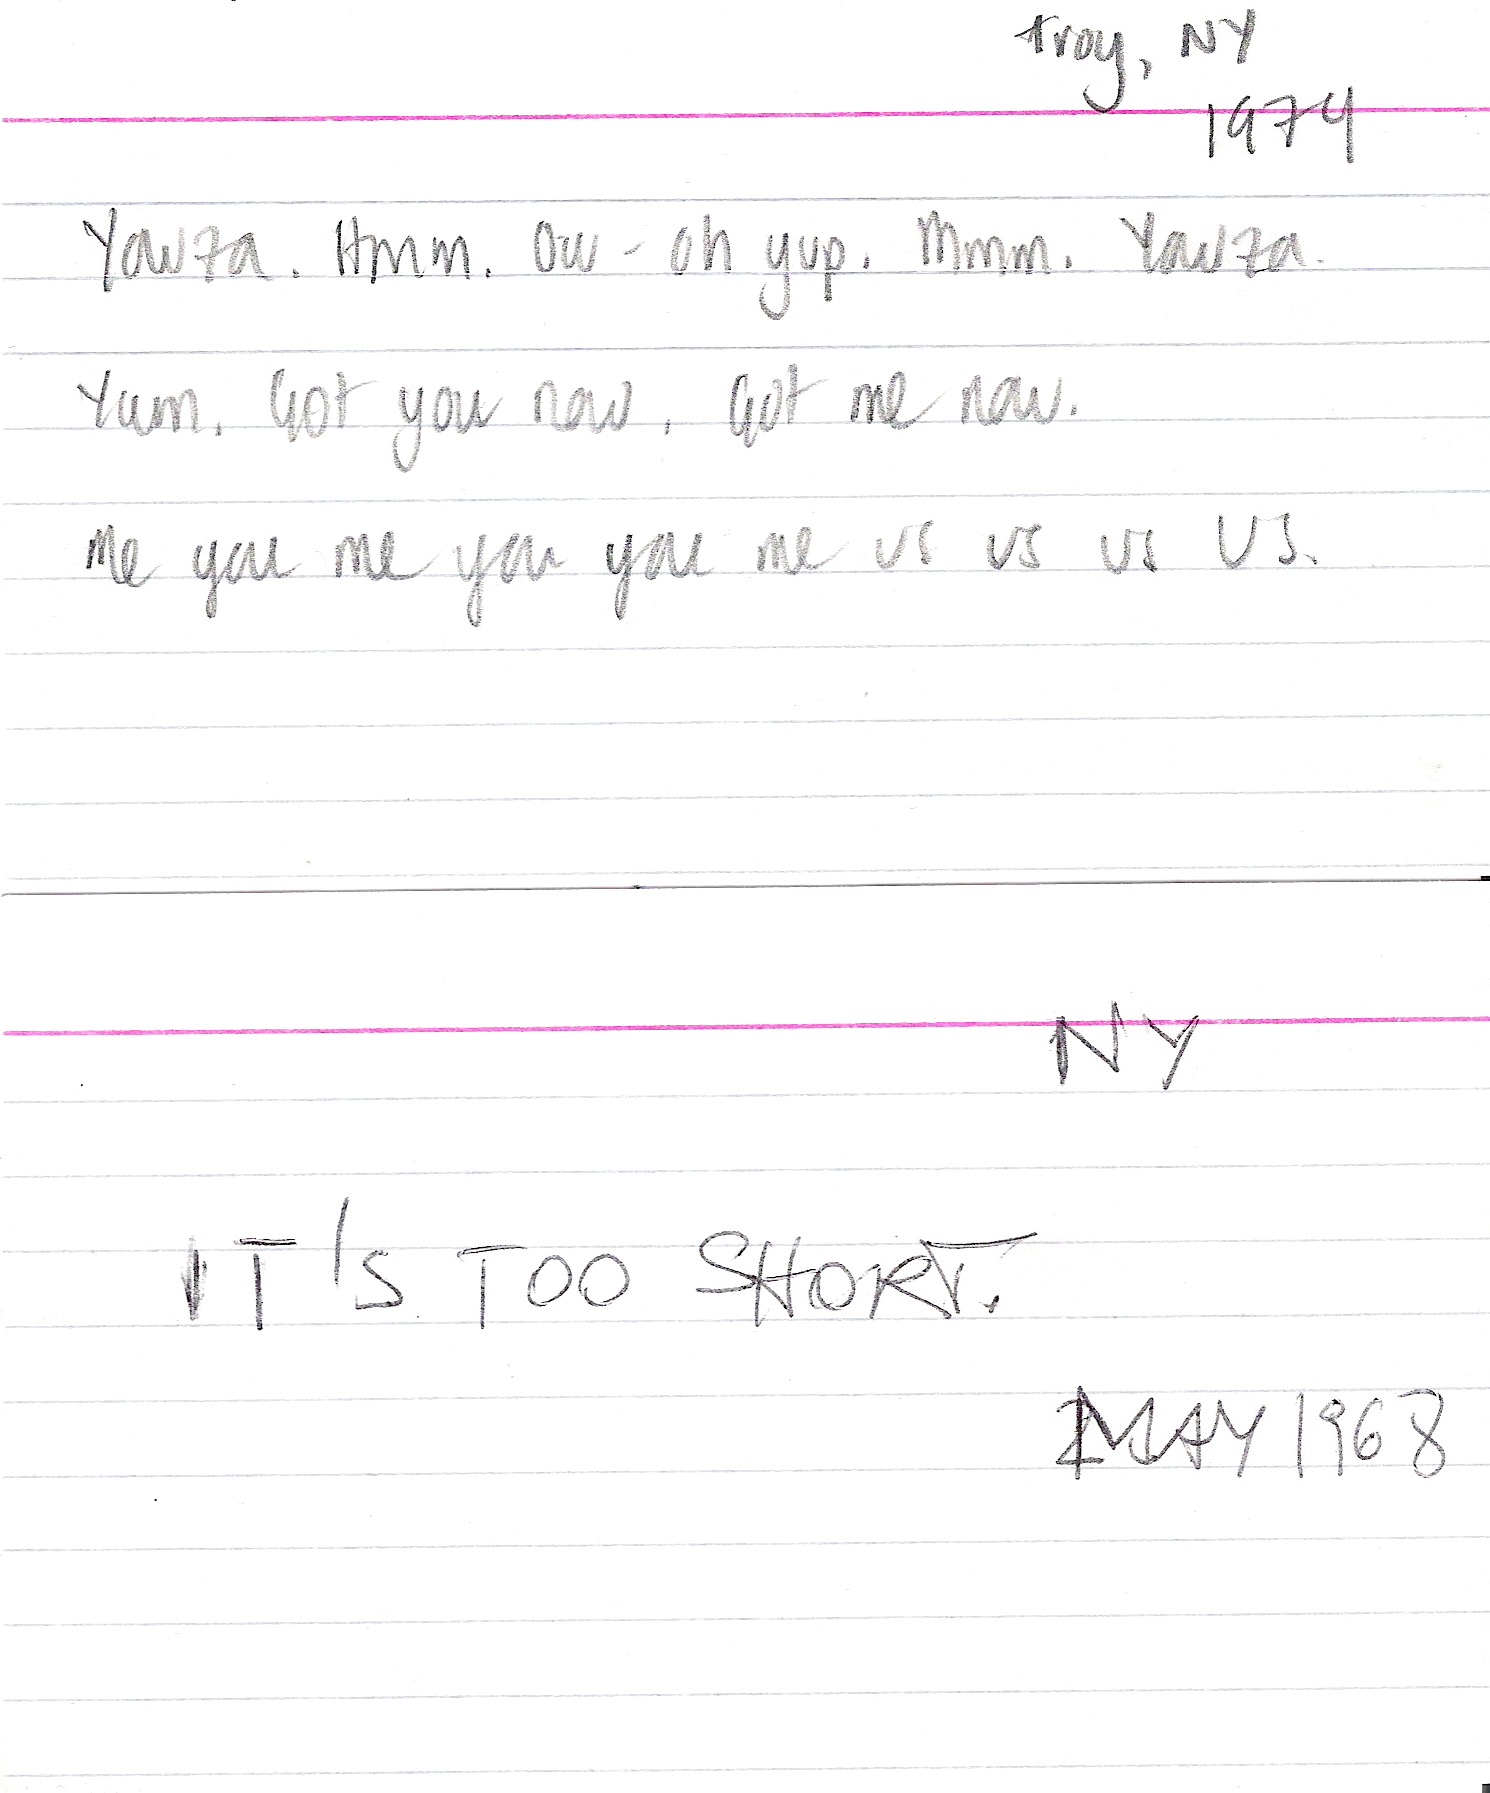 Troy, NY
1974
Yowza. Hmm. Ow - oh yup. Mmm. Yowza.
Yum. Got you now. Got me now.
Me you me you you me us us us us.
NY
IT'S TOO SHORT.
MAY 1968